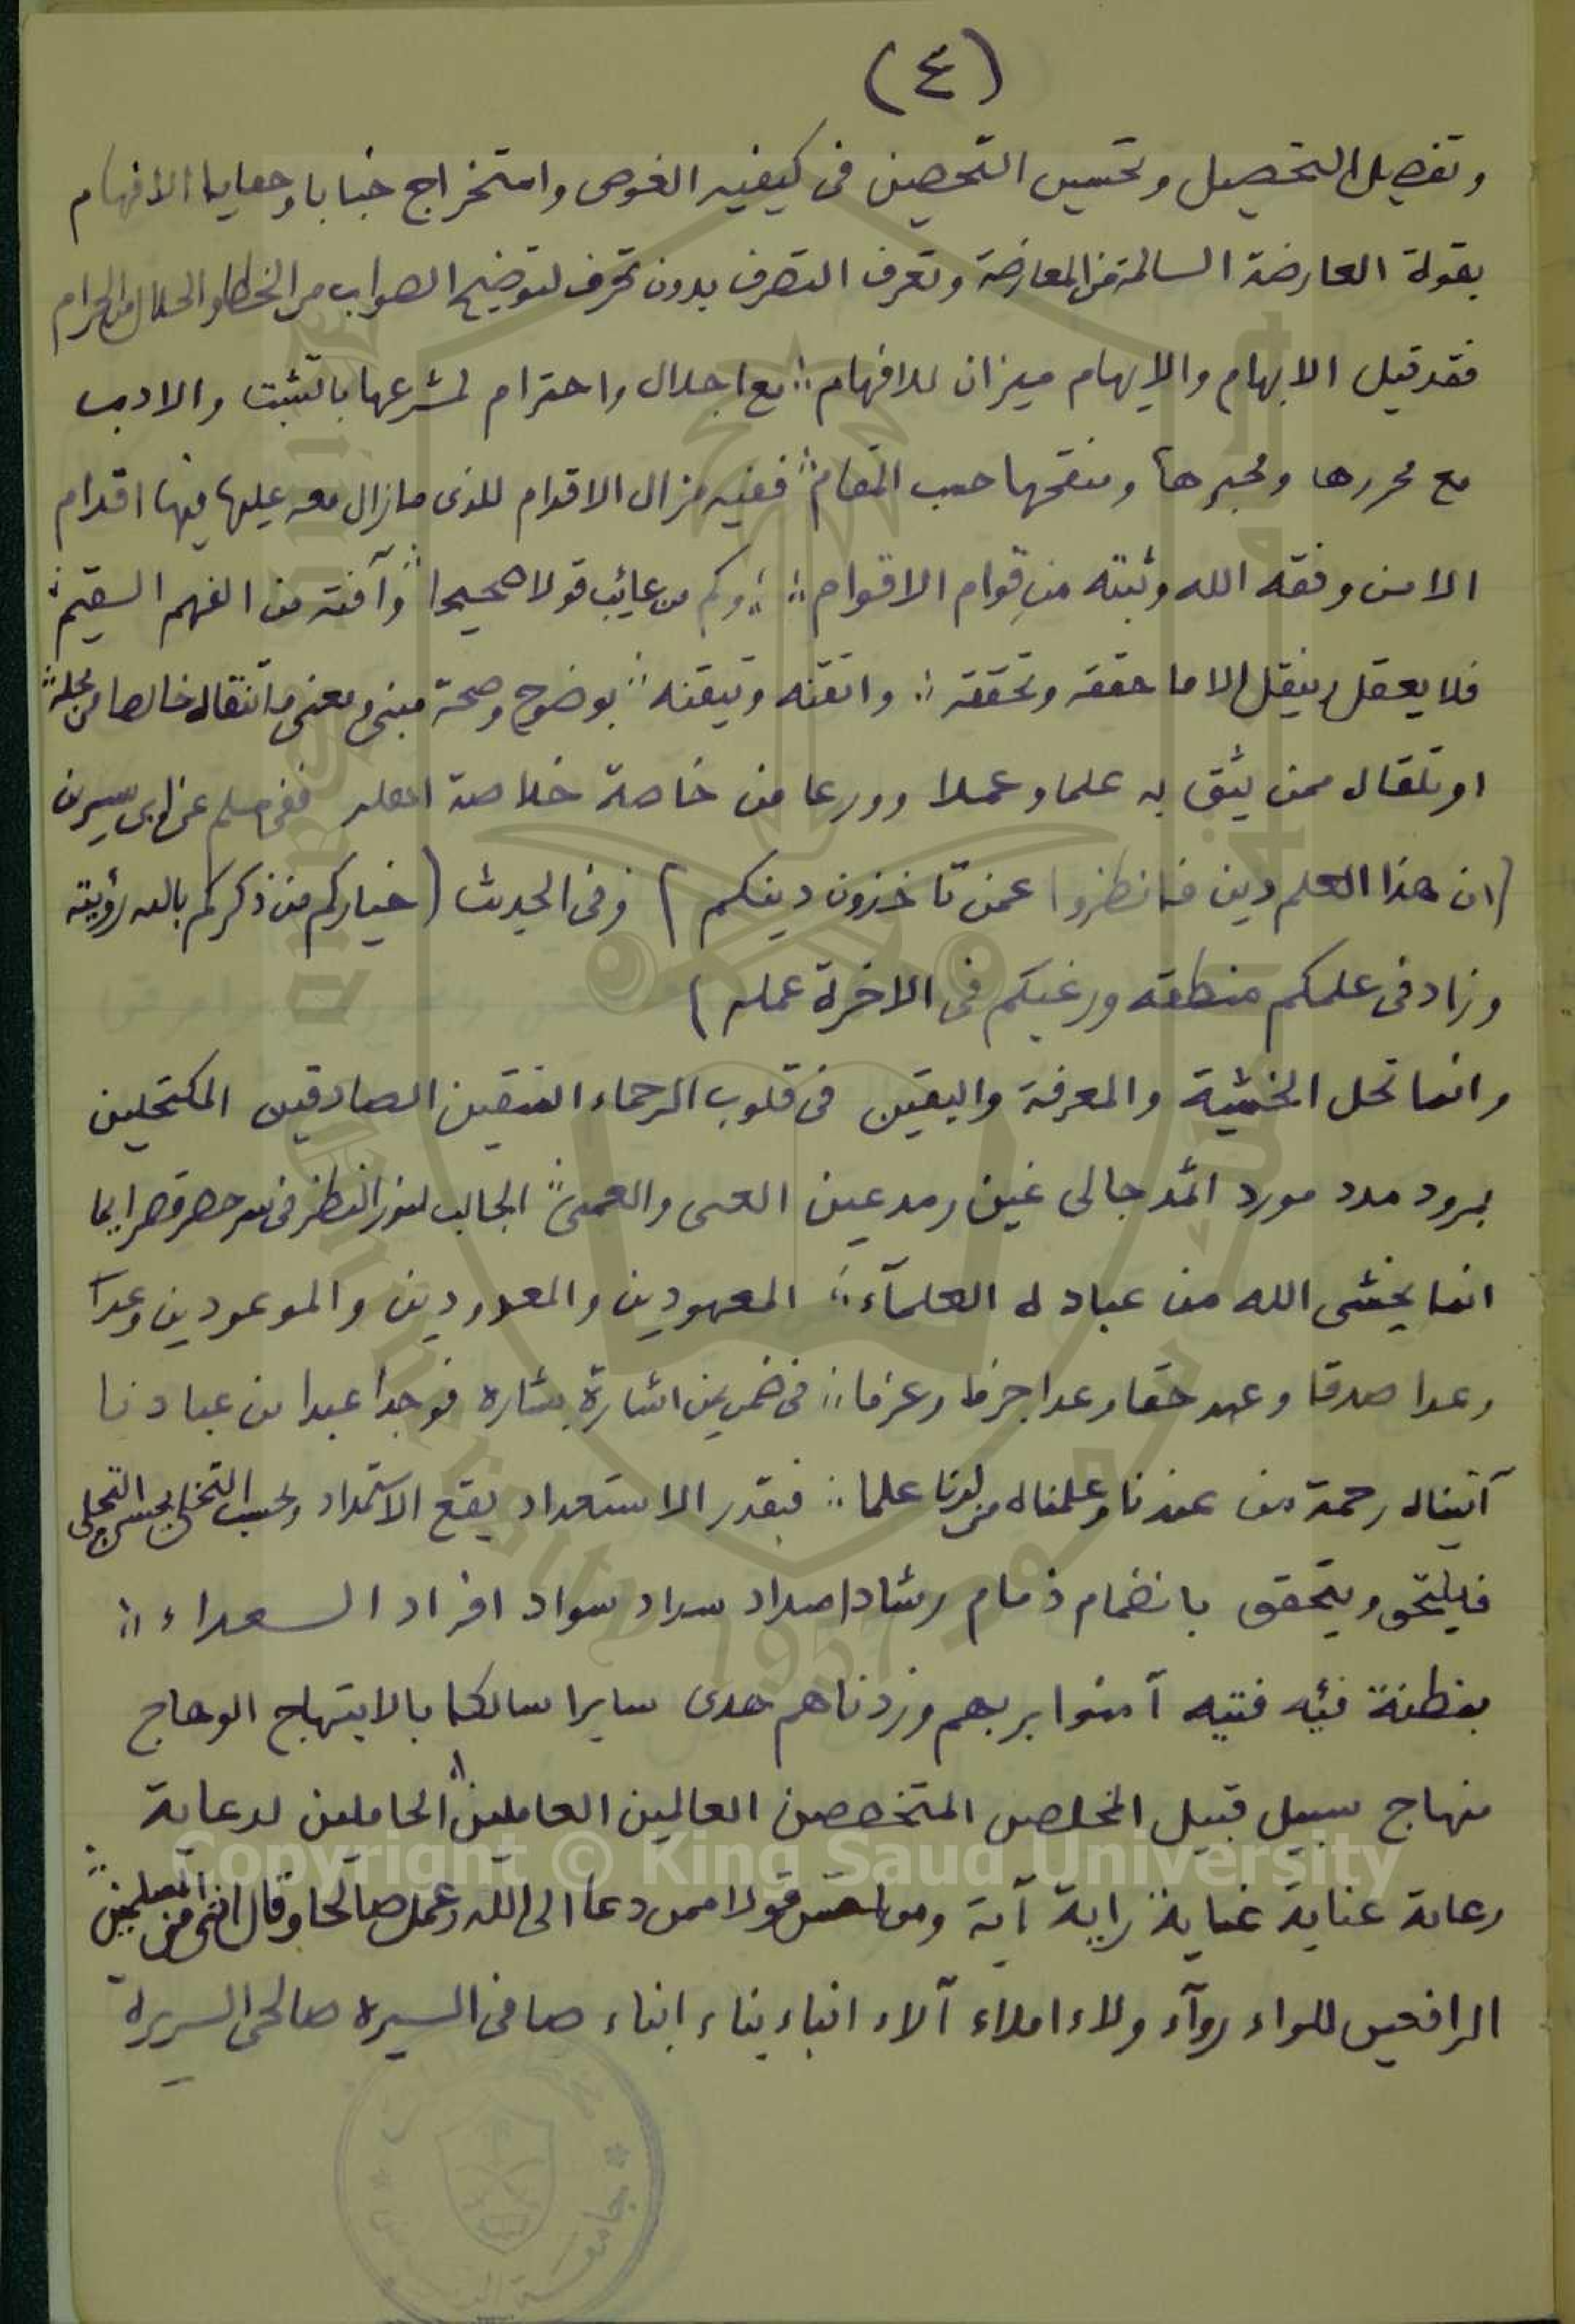 (٤)
وتفصيل التحصيل وتحسين التحصين فى كيفيه الغوص واستخراج خبايا الافهام
بقولة العارضة السالمة من المعارضة وتعرف التصرف بدون تحرف لتوضيح الصواب من الخطا والحلال من الحرام
فقد قيل الابهام والايهام ميزان للافهام مع اجلال واحترام لمشرعها بالتثبت والادب
مع محررها ومحبرها ومنقحها حسب المقام ففيه مزال الاقدام للذى مازال معه عليها فيها اقدام
الا من وفقه الله وثبته من قوام الاقوام وكم من عائب قولا صحيحا وآفته من الفهم السقيم
فلا يعقل وينقل الا ما حققه وتحققه واتقنه وتيقنه بوضوح وصحة مبنى ومعنى ما انتقاه خالصا من محله
او تلقاه ممن يثق به علما وعملا وورعا من خاصة خلاصة اهله ففى مسلم عن ابن سيرين
(ان هذا العلم دين فانظروا عمن تاخذون دينكم) وفى الحديث (خياركم من ذكركم بالله رؤيته
وزاد فى علمكم منطقه ورغبكم فى الاخرة عمله)
وانما تحل الخشية والمعرفة واليقين فى قلوب الرحماء المتقين الصادقين المكتحلين
ببرود مدد مورد اثمد جالى غين رمد عين العى والعمى الجالب لنور النظر فى سر حصر قصر ايما
انما يخشى الله من عباده العلمآء المعهودين والمعدودين والموعودين وعدا
وعدا صدقا وعهد حقا وعدا جزما وعزما فى ضمن اشارة بشاره فوجدا عبدا من عبادنا
آتيناه رحمة من عندنا وعلمناه من لدنا علما فبقدر الاستعداد يقع الاستمداد وبحسب التخلى يحسن التحلى
فيلتحق ويتحقق بانضمام ذمام رشاد امداد سداد سواد افراد السعداء
بفطنة فئه فتيه آمنوا بربهم وزدناهم هدى سايرا سالكا بالابتهاج الوهاج
منهاج سبيل قبيل المخلصين المتخصصين العالمين العاملين الحاملين لدعاية
رعاية عناية غياية راية آية ومن احسن قولا ممن دعا الى الله وعمل صالحا وقال اننى من المسلمين
الرافعين للواء روآء ولاء املاء آلاء انباء بناء ابناء صافى السيره صالحى السريرة
Copyright © King Saud University
1957